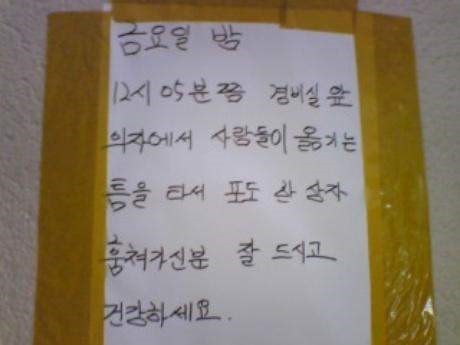 금요일 밤
12시 05분쯤 경비실 앞
의자에서 사람들이 옮기는
틈을 타서 포도 한 상자
훔쳐가신분 잘 드시고
건강하세요.